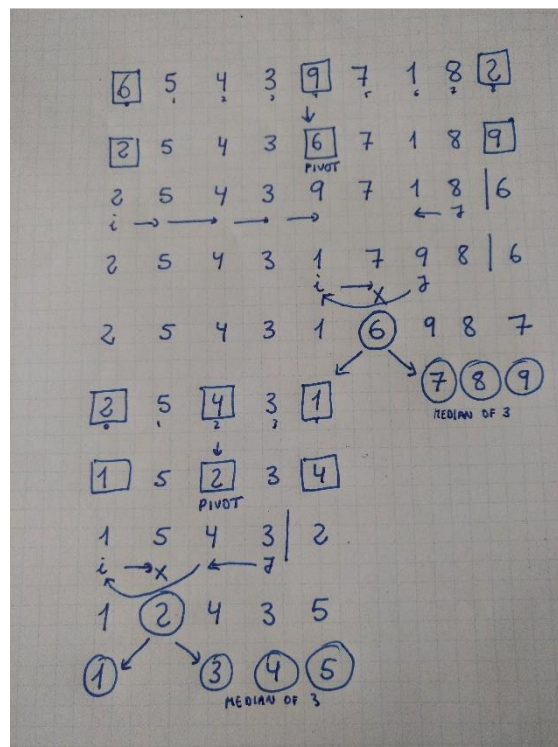 6 5 4 3 9 7 1 8 2
0 1 2 3 4 5 6 7 8
2 5 4 3 6 7 1 8 9
PIVOT
2 5 4 3 9 7 1 8 | 6
i → → → → ← j
2 5 4 3 1 7 9 8 | 6
i → x j
2 5 4 3 1 6 9 8 7
7 8 9
MEDIAN OF 3
2 5 4 3 1
0 1 2 3 4
1 5 2 3 4
PIVOT
1 5 4 3 | 2
i → x ← j
1 2 4 3 5
1 3 4 5
MEDIAN OF 3